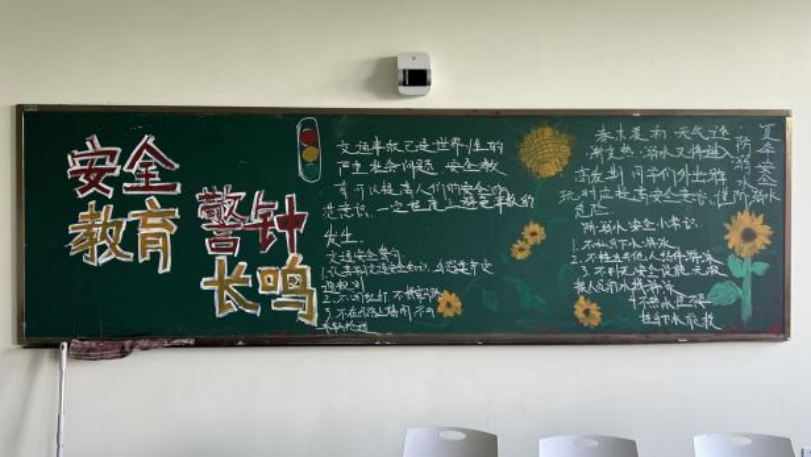 安全
教育
警钟
长鸣
交通事故已是世界性的
严重社会问题 安全教
育可以提高人们的安全防
范意识,一定程度上避免事故的
发生.
交通安全警句:
2.不闯红灯 不
3.不在
春末夏初,天气逐
渐变热,溺水又将进入
高发期 同学们外出游
玩时应提高安全意识,谨防溺水
危险.
防溺水安全小常识:
1.不私自下水游泳
2.不擅自与他人结伴游泳
3.不到无安全设施、无救
援人员的水域游泳
4.不熟水性不
擅自下水施救
夏季安全
防溺水